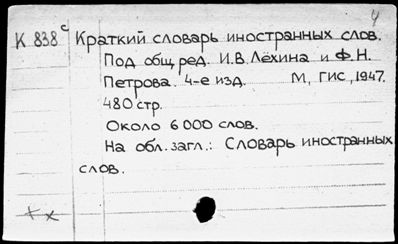 4
К 838 с Краткий словарь иностранных слов.
Под общ. ред. И.В. Лёхина и Ф.Н.
Петрова. 4-е изд. М, ГИС, 1947.
480 стр.
Около 6000 слов.
На обл. загл.: Словарь иностранных
слов.
++